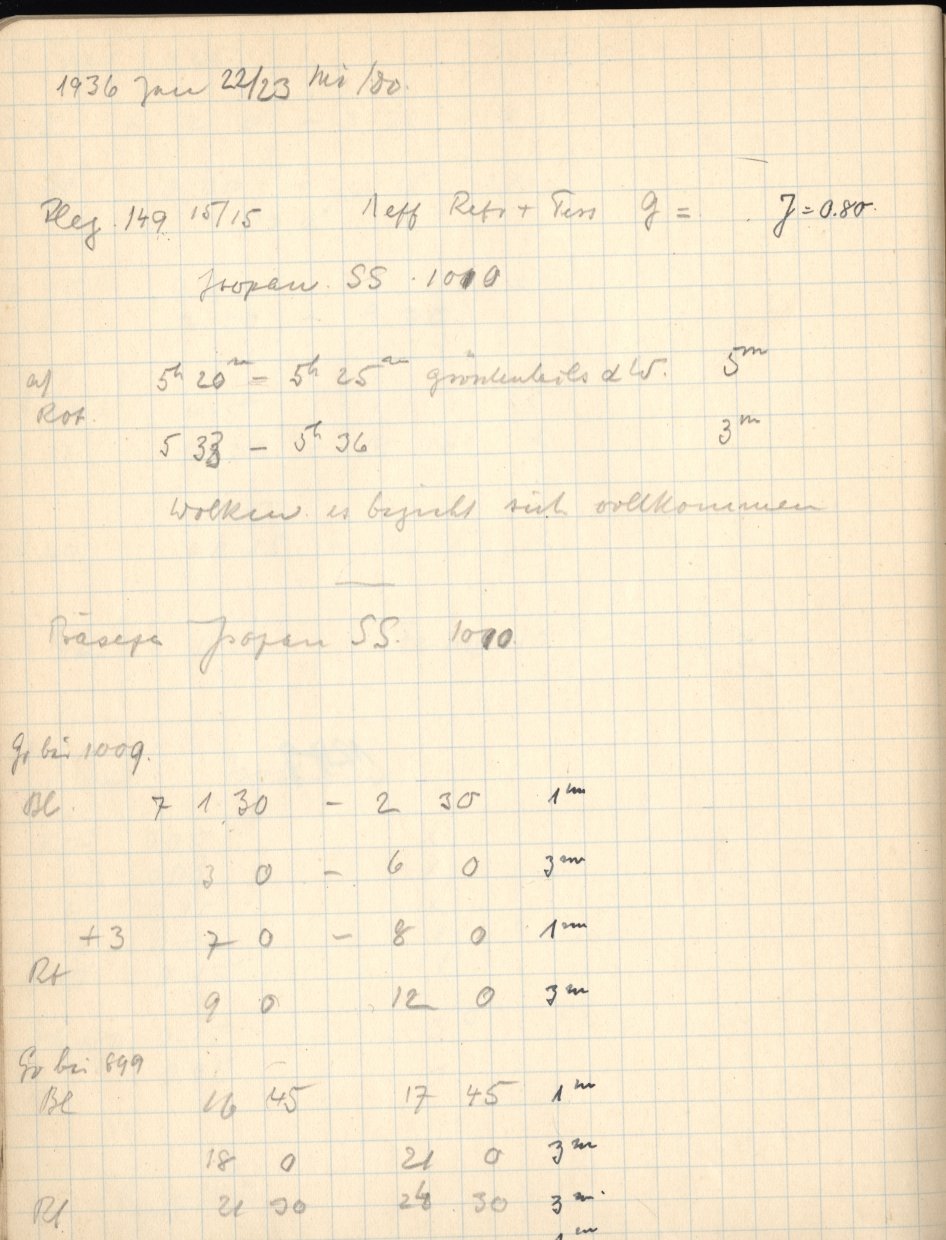 1936 Jan 22/23 Mi/Do.
149 15/15 Neff Refr + Tess g = J = 0.80.
Isopan. SS. 1010
a/ 5h 20m – 5h 25m grösstenteils d W. 5m
Rot.
5 33 – 5h 36 3m
Wolken es bezieht sich vollkommen
Präsepe Isopan SS. 1010
Gr bei 1009.
Bl. 7 1 30 – 2 30 1m
3 0 – 6 0 3m
+3 7 0 – 8 0 1m
Rt
9 0 12 0 3m
Gr bei 899
Bl 16 45 17 45 1m
18 0 21 0 3m
Rt 21 30 24 30 3m